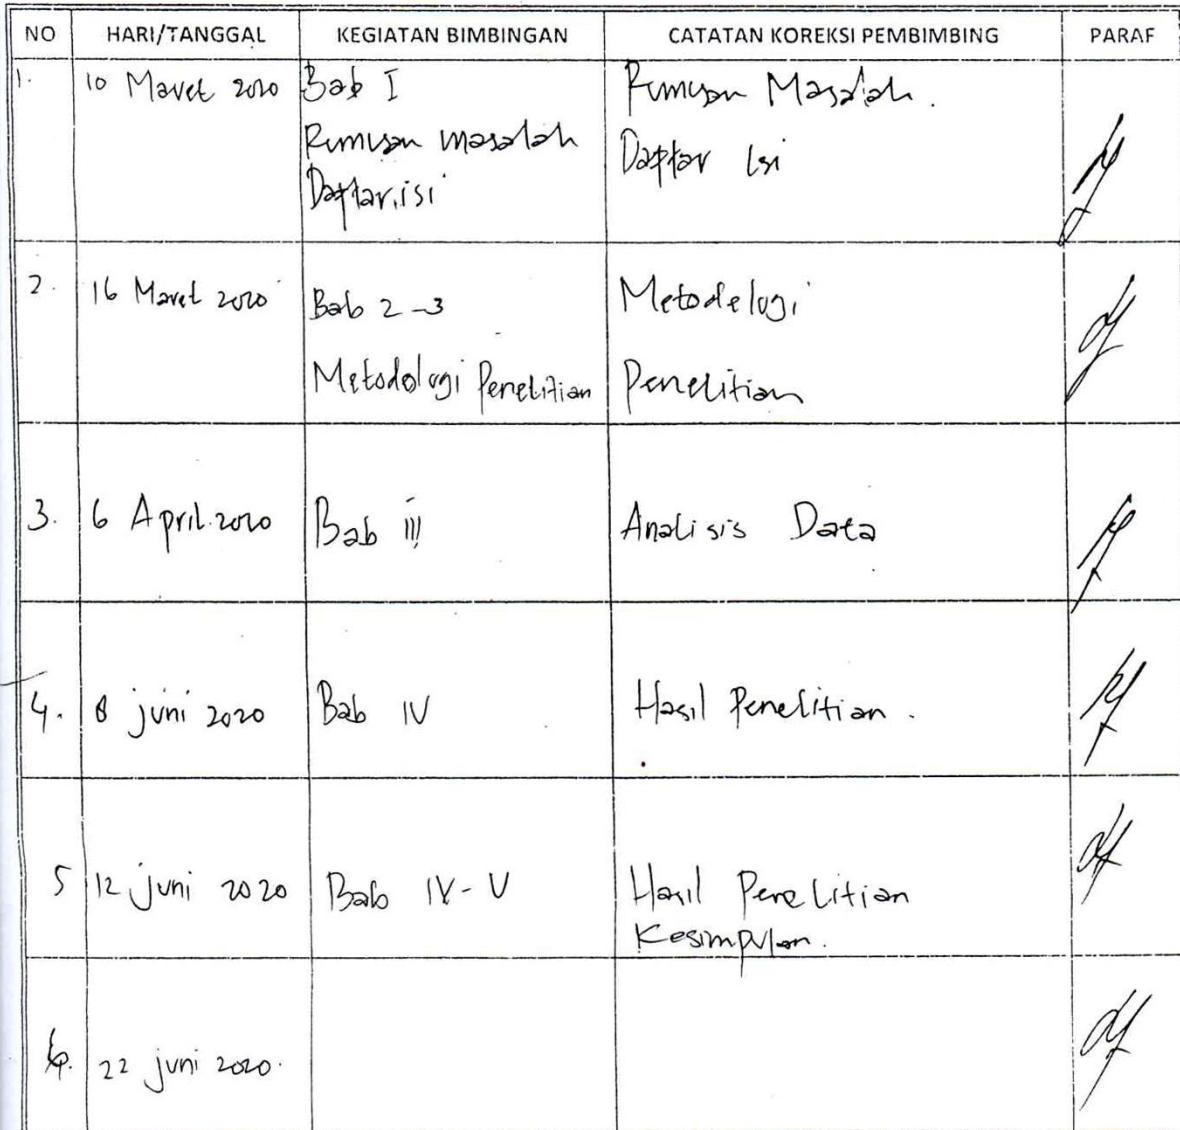 NO HARI/TANGGAL KEGIATAN BIMBINGAN CATATAN KOREKSI PEMBIMBING PARAF
1. 10 Maret 2020 Bab I Rumusan Masalah.
Rumusan masalah Daftar Isi
Daftar isi
2. 16 Maret 2020 Bab 2-3 Metodelogi
Metodologi Penelitian Penelitian
3. 6 April 2020 Bab III Analisis Data
4. 8 juni 2020 Bab IV Hasil Penelitian.
5 12 juni 2020 Bab IV-V Hasil Penelitian
Kesimpulan.
6. 22 juni 2020.